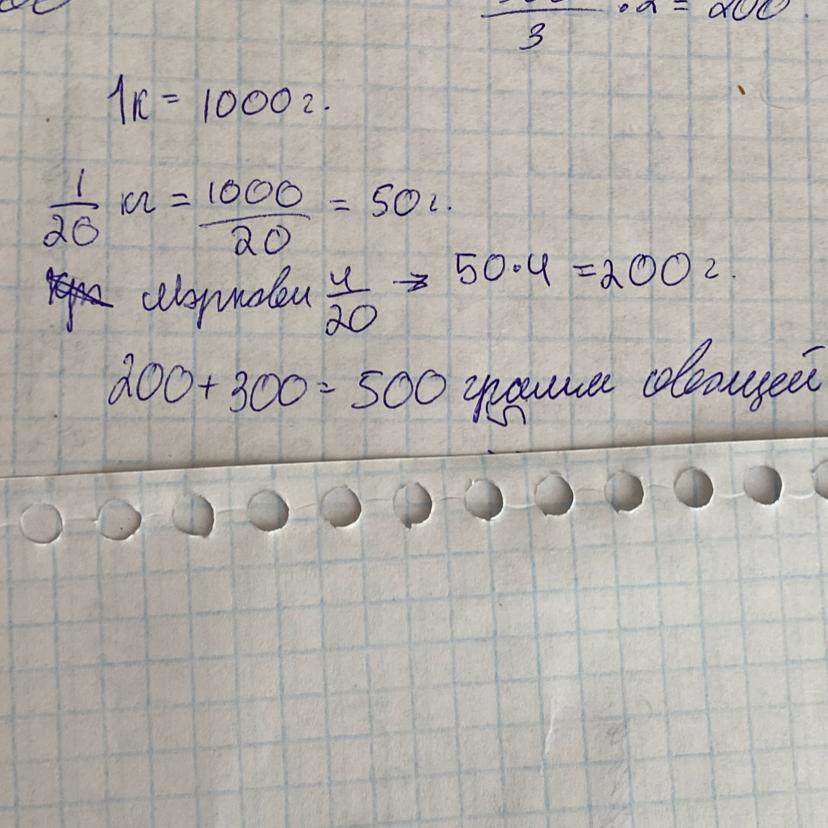 3 · 2 = 200.
1к = 1000 г.
1/20 кг = 1000/20 = 50 г.
моркови 4/20 → 50·4 = 200 г.
200 + 300 = 500 грамм овощей